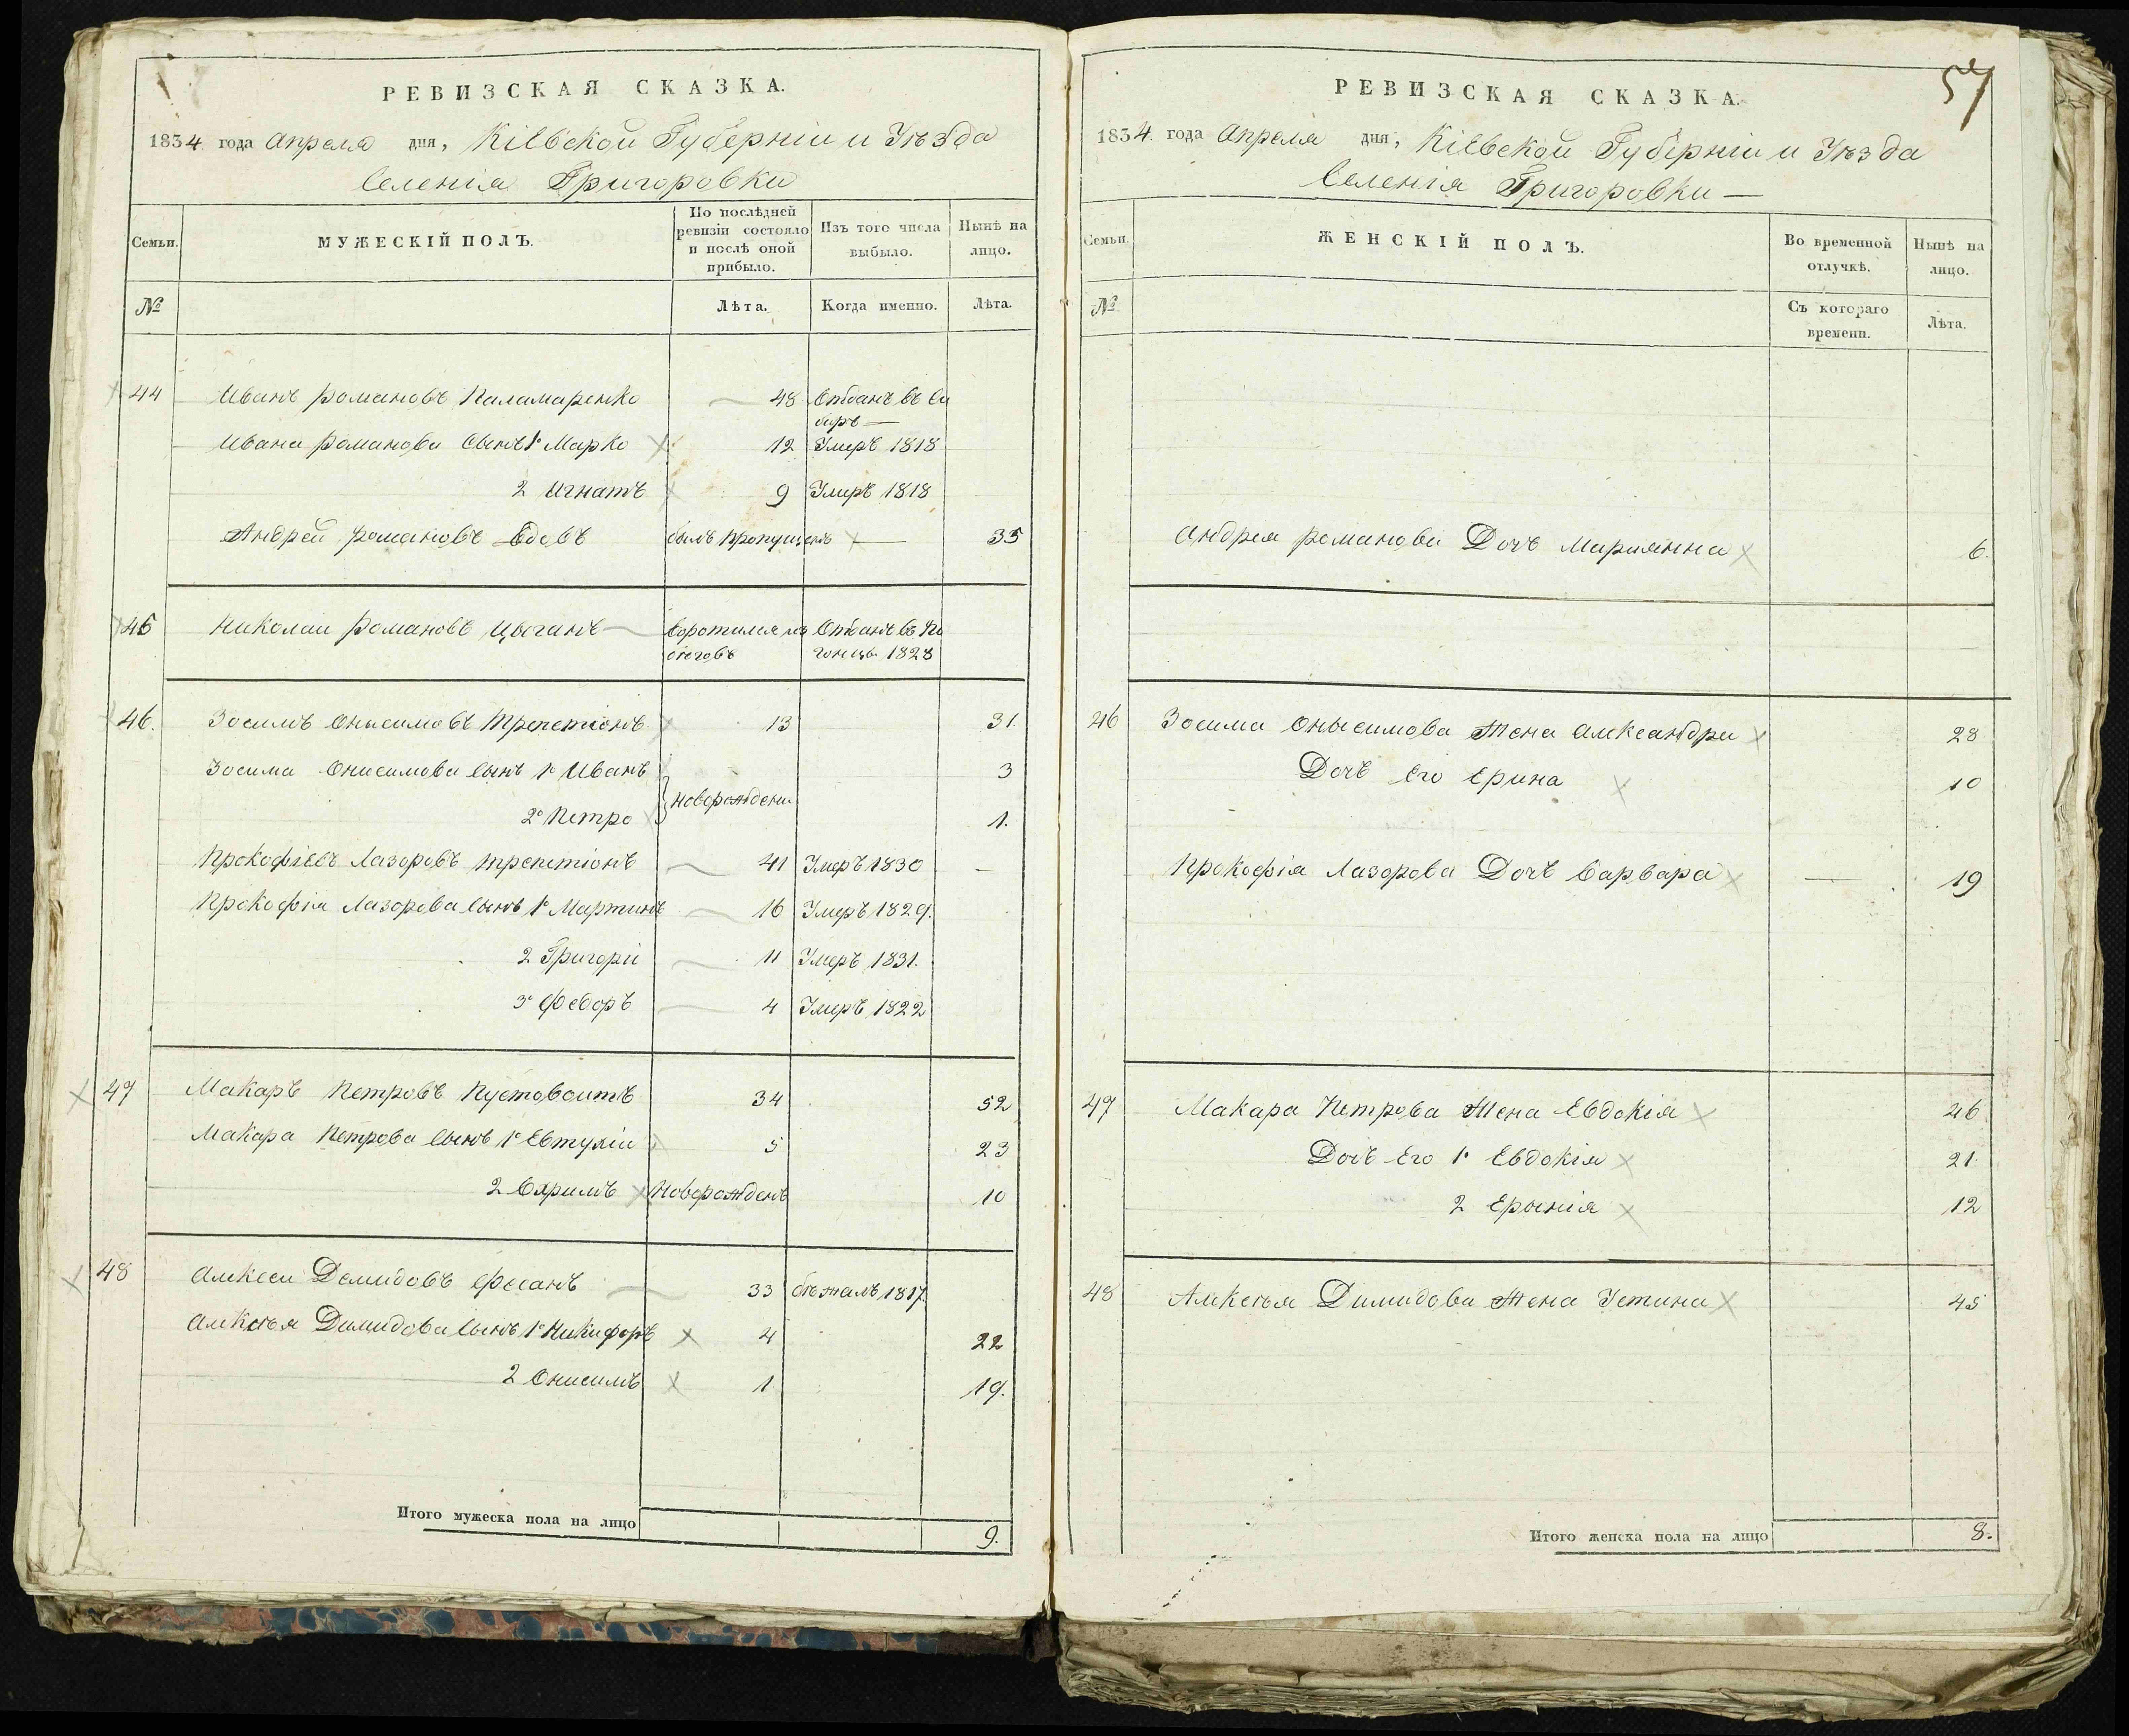 РЕВИЗСКАЯ СКАЗКА.
1834 года Апреля дня, Кіевской Губерніи и Уѣзда
Селенія Григоровки
Семьи.
МУЖЕСКІЙ ПОЛЪ.
По послѣдней ревизіи состояло и послѣ оной прибыло.
Изъ того числа выбыло.
Нынѣ на лицо.
№
Лѣта.
Когда именно.
Лѣта.
44 Иванъ Романовъ Паламаренко 48 Отданъ въ Си
биръ —
Ивана Романова Сынъ 1й Марко 12 Умеръ 1818
2 Игнатъ 9 Умеръ 1818
Андрей Романовъ Вдовъ былъ пропущенъ — 35
45 Николаи Романовъ Цыганъ воротился изъ Отданъ въ По
беговъ гонцы 1828
46. Зосимъ Онысимовъ Трепетіонъ 13 31
Зосима Онисимова Сынъ 1й Иванъ 3
Новорожденн
2й Петро 1.
Прокофіевъ Лазоровъ Трепетіонъ 41 Умеръ 1830 —
Прокофія Лазорова Сынъ 1й Мартинъ 16 Умеръ 1829.
2 Григоріи 11 Умеръ 1831.
3й Федоръ 4 Умеръ 1822
47 Макаръ Петровъ Пустовоитъ 34 52
Макара Петрова Сынъ 1й Евтухіи 5 23
2 Охримъ Новорожденъ 10
48 Алексеи Демидовъ Фесанъ 33 бѣжалъ 1817.
Алексѣя Димидова Сынъ 1й Никифоръ 4 22
2 Онисимъ 1 19.
Итого мужеска пола на лицо 9.
57
РЕВИЗСКАЯ СКАЗКА.
1834. года Апреля дня, Кіевской Губерніи и Уѣзда
Селенія Григоровки —
Семьи.
ЖЕНСКІЙ ПОЛЪ.
Во временной отлучкѣ.
Нынѣ на лицо.
№
Съ котораго времени.
Лѣта.
Андрея Романова Дочъ Мариянна 6.
46 Зосима Онысимова Жена Александра 28
Дочъ Его Ерина 10
Прокофія Лазорова Дочъ Варвара — 19
47 Макара Петрова Жена Евдокія 46
Дочъ Его 1й Евдокія 21
2 Ерынія 12
48 Алексѣя Димидова Жена Устина 45
Итого женска пола на лицо 8.